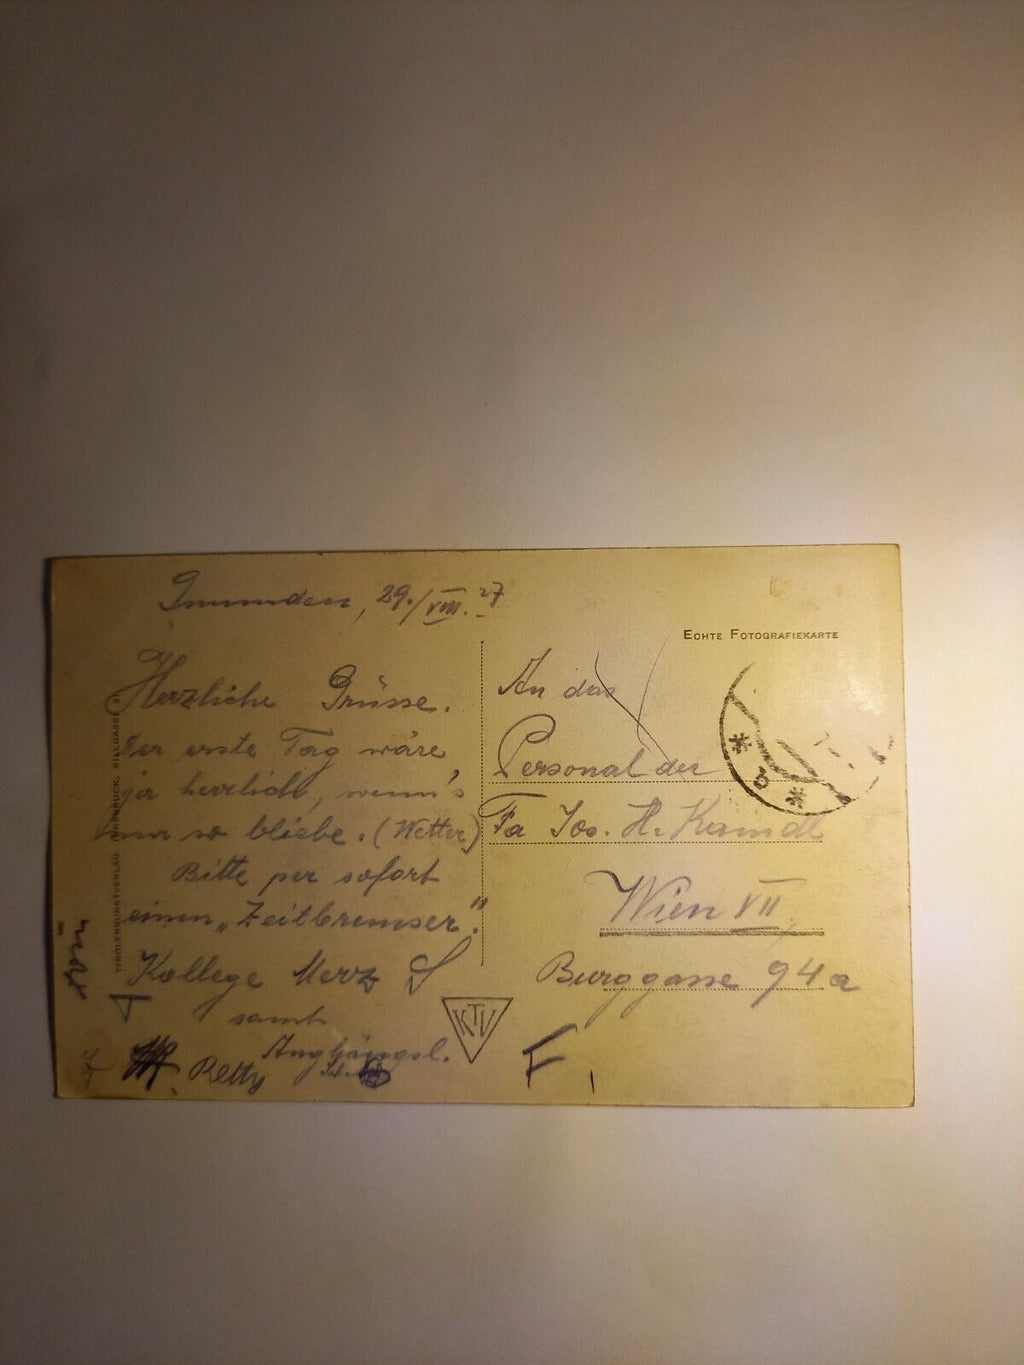 Gmunden, 29./VIII. 27
Herzliche Grüsse.
Der erste Tag wäre
ja herrlich, wenn's
nur so bliebe. (Wetter)
Bitte per sofort
einen „Zeitbremser".
Kollege Merz
samt
Anghängsl.
Betty
TIROLERKUNSTVERLAG INNSBRUCK,
KTV
ECHTE FOTOGRAFIEKARTE
An das
Personal der
Fa Jos. H. Kaindl
Wien VII
Burggasse 94a
F